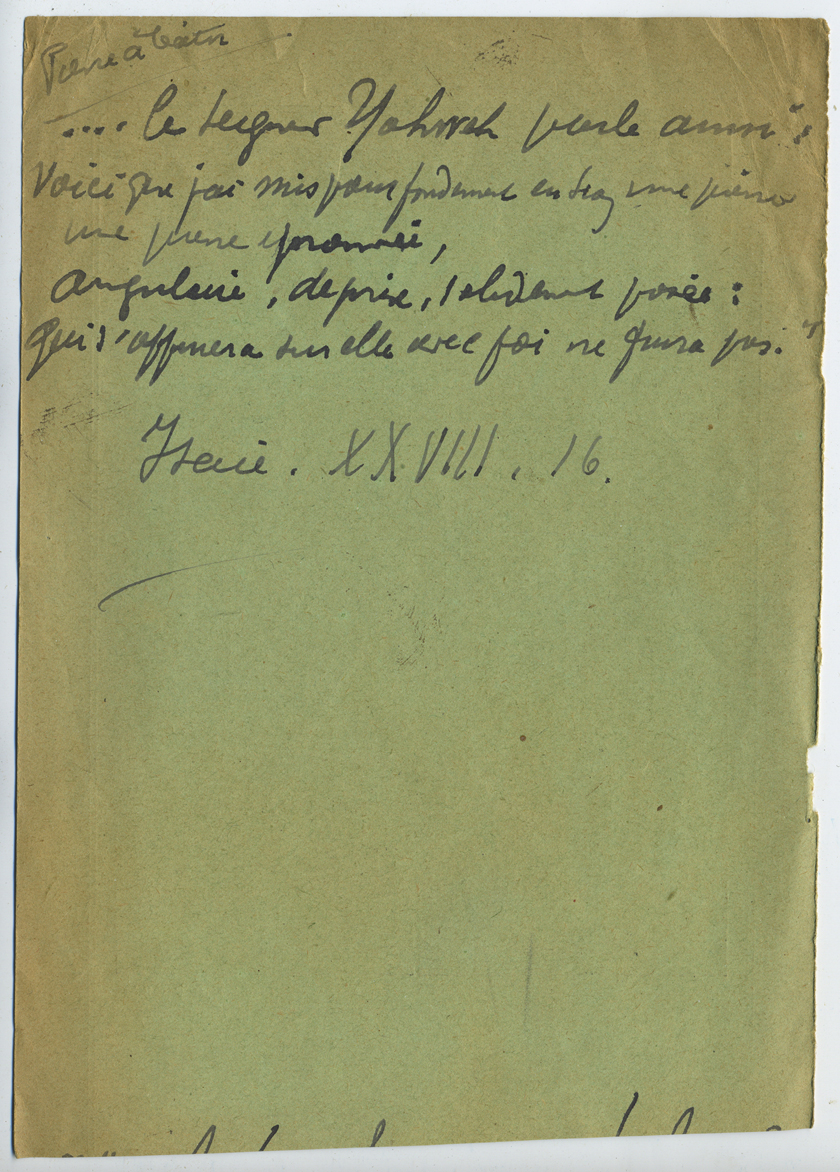 Pierre à bâtir
.... le Seigneur Yahweh parle ainsi :
Voici que j'ai mis pour fondement en Sion une pierre
une pierre éprouvée,
angulaire, de prix, solidement posée :
Qui s'appuiera sur elle avec foi ne fuira pas."
Isaïe. XXVIII. 16.